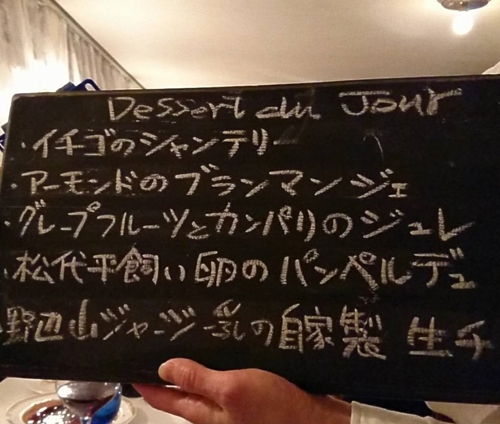 Dessert du Jour
・イチゴのシャンテリー
・アーモンドのブランマンジェ
・グレープフルーツとカンパリのジュレ
・松代平飼い卵のパンペルデュ
野辺山ジャージー乳の自家製 生チ